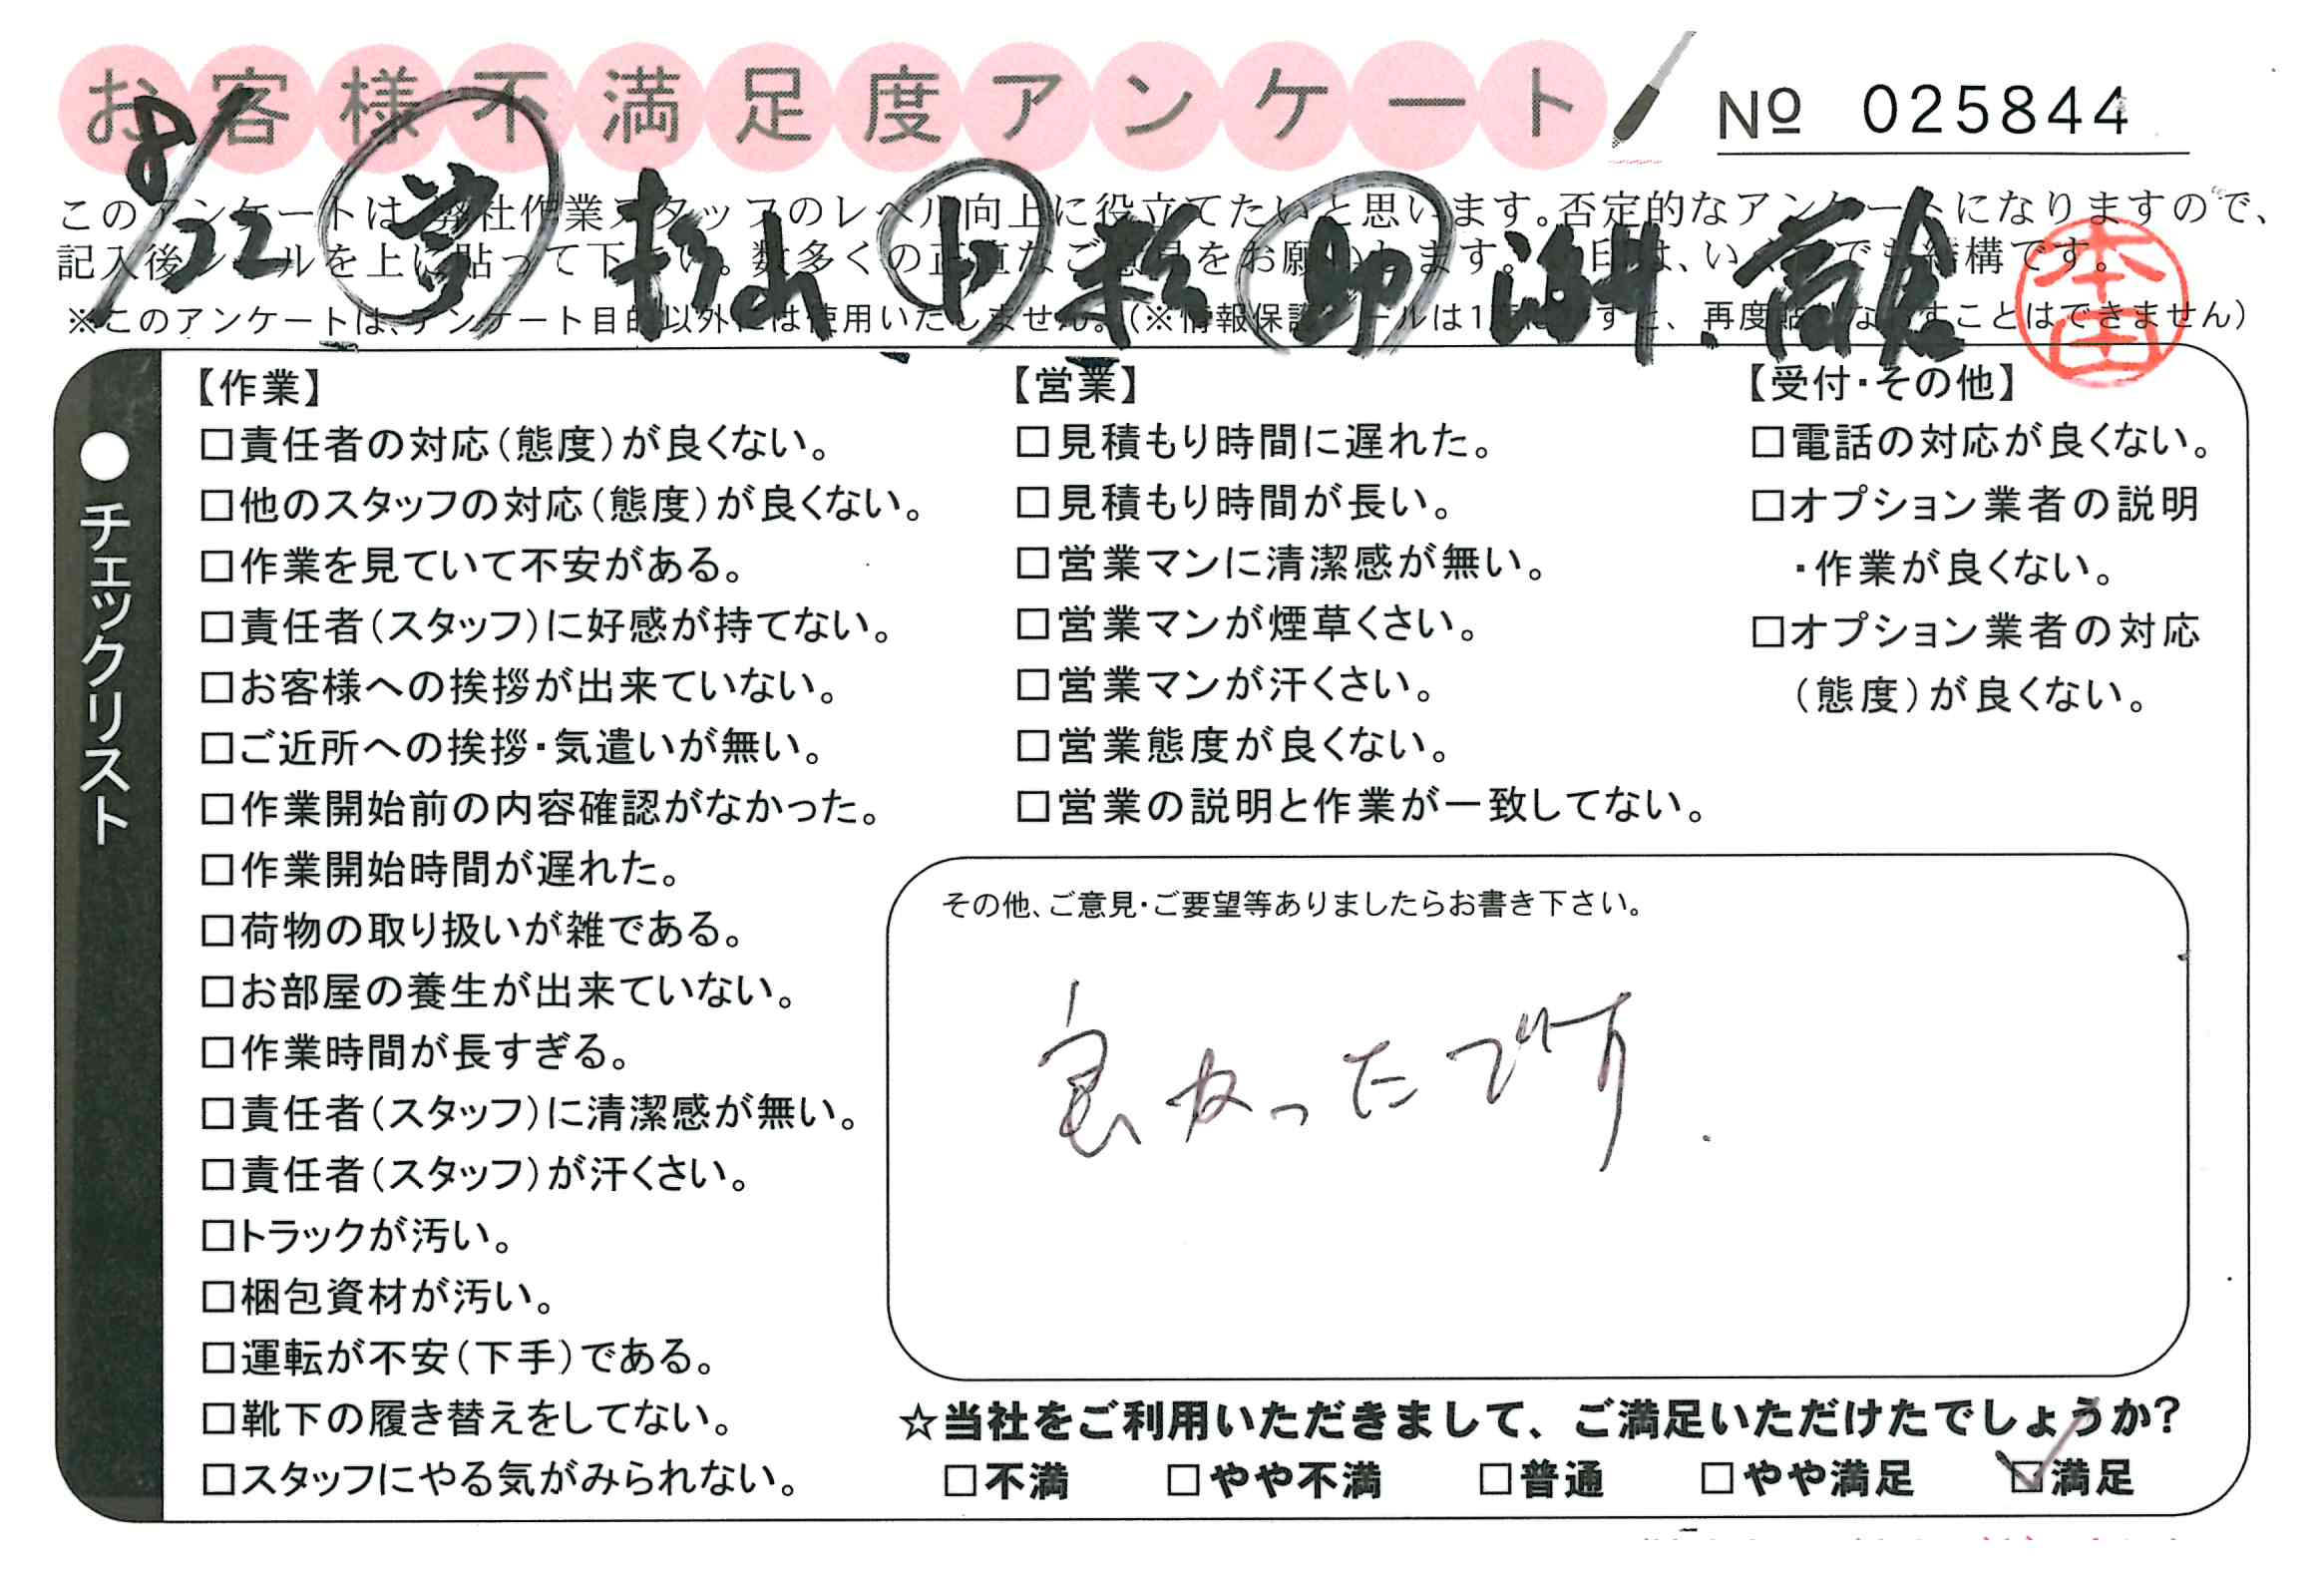 お客様不満足度アンケート
№ 025844
8/22 杉山
このアンケートは、弊社作業スタッフのレベル向上に役立てたいと思います。否定的なアンケートになりますので、
記入後シールを上に貼って下さい。数多くの正直なご意見をお願いします。
※このアンケートは、アンケート目的以外には使用いたしません。（※情報保護シールは1度はがすと、再度貼りなおすことはできません）
本田
●チェックリスト
【作業】
□責任者の対応（態度）が良くない。
□他のスタッフの対応（態度）が良くない。
□作業を見ていて不安がある。
□責任者（スタッフ）に好感が持てない。
□お客様への挨拶が出来ていない。
□ご近所への挨拶・気遣いが無い。
□作業開始前の内容確認がなかった。
□作業開始時間が遅れた。
□荷物の取り扱いが雑である。
□お部屋の養生が出来ていない。
□作業時間が長すぎる。
□責任者（スタッフ）に清潔感が無い。
□責任者（スタッフ）が汗くさい。
□トラックが汚い。
□梱包資材が汚い。
□運転が不安（下手）である。
□靴下の履き替えをしてない。
□スタッフにやる気がみられない。
【営業】
□見積もり時間に遅れた。
□見積もり時間が長い。
□営業マンに清潔感が無い。
□営業マンが煙草くさい。
□営業マンが汗くさい。
□営業態度が良くない。
□営業の説明と作業が一致してない。
【受付・その他】
□電話の対応が良くない。
□オプション業者の説明
・作業が良くない。
□オプション業者の対応
（態度）が良くない。
その他、ご意見・ご要望等ありましたらお書き下さい。
良かったです.
☆当社をご利用いただきまして、ご満足いただけたでしょうか?
□不満 □やや不満 □普通 □やや満足 ☑満足